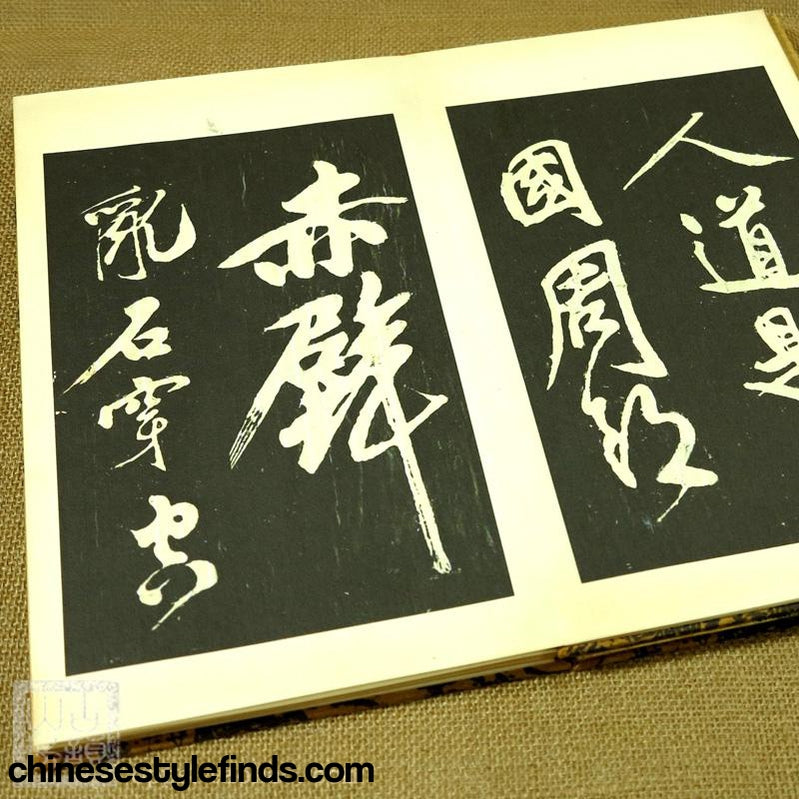 人道是
國周郎
赤壁
亂石穿空
chinesestylefinds.com